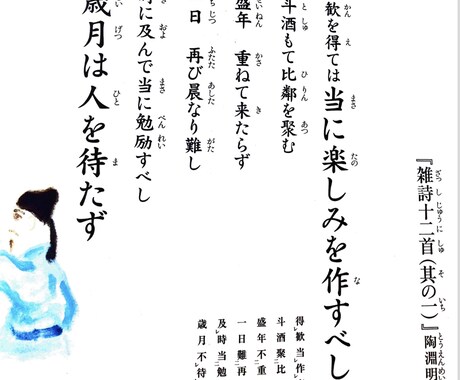 『雑詩十二首(其の一)』 陶淵明
歓を得ては当に楽しみを作すべし
斗酒もて比鄰を聚む
盛年 重ねて来たらず
日 再び晨なり難し
に及んで当に勉励すべし
歳月は人を待たず
得歓当作
斗酒聚比
盛年不重
一日難再
及時当勉
歳月不待